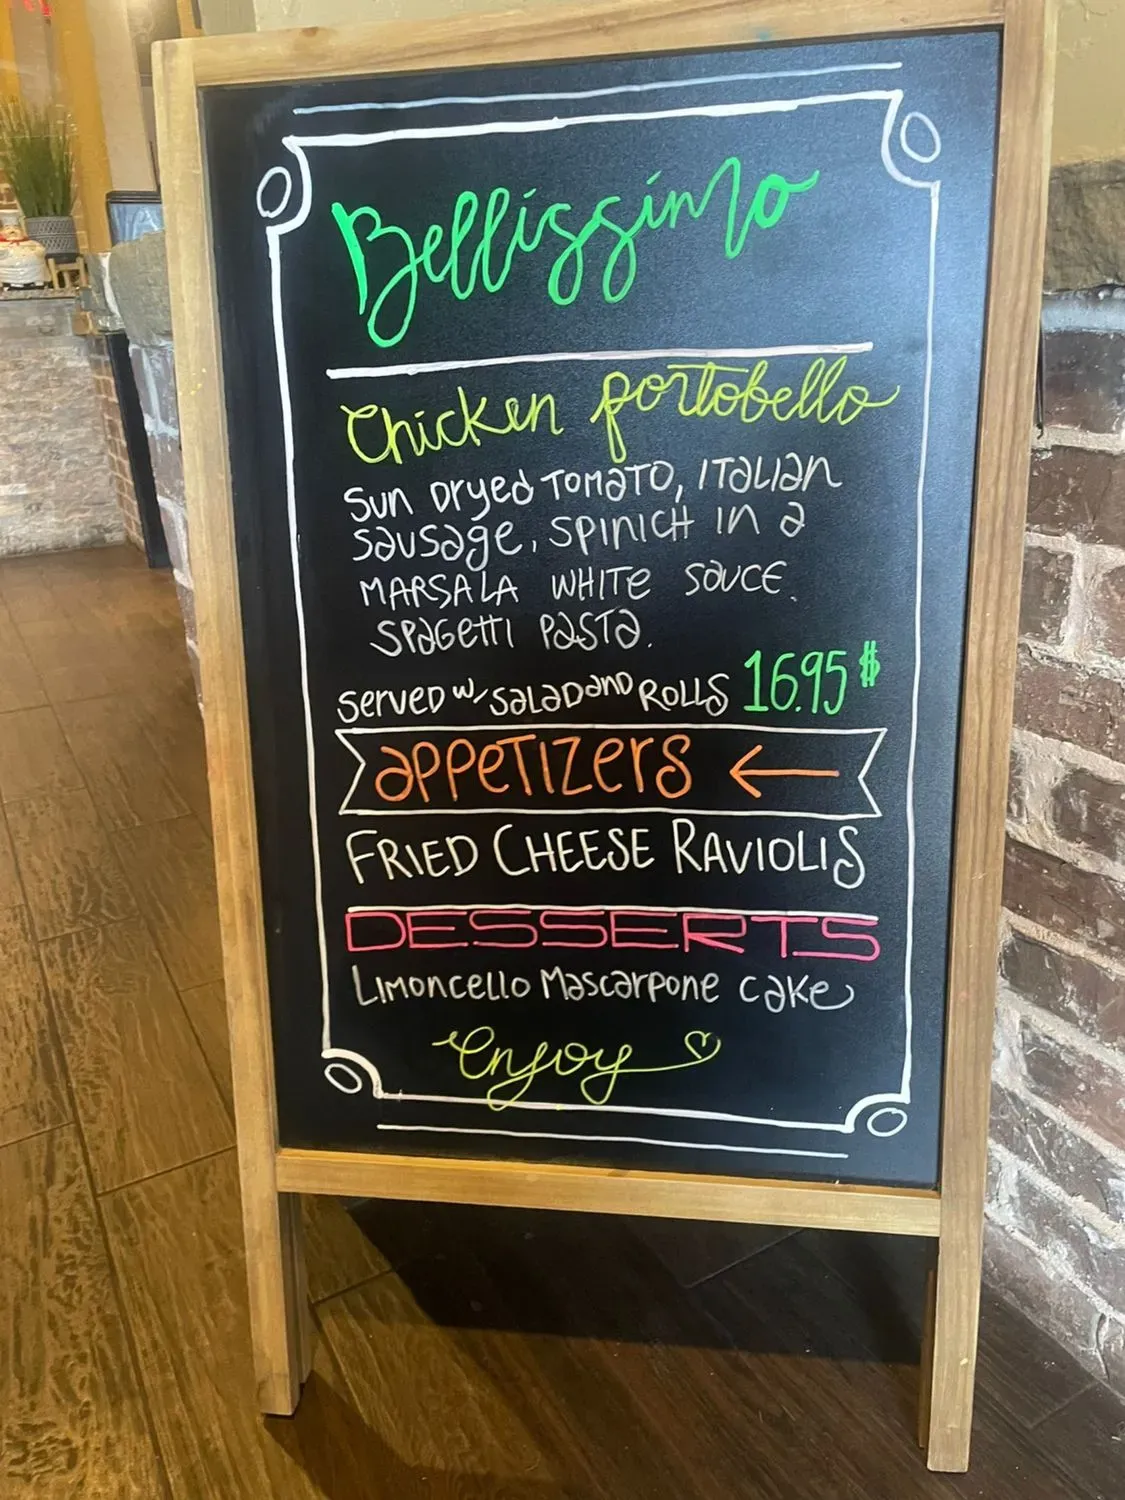 Bellissimo
Chicken portobello
Sun Dryed Tomato, Italian
Sausage, Spinich in a
Marsala White Sauce.
Spagetti Pasta.
Served w/ Salad and Rolls 16.95$
Appetizers ←
Fried Cheese Raviolis
DESSERTS
Limoncello Mascarpone cake
Enjoy ♡